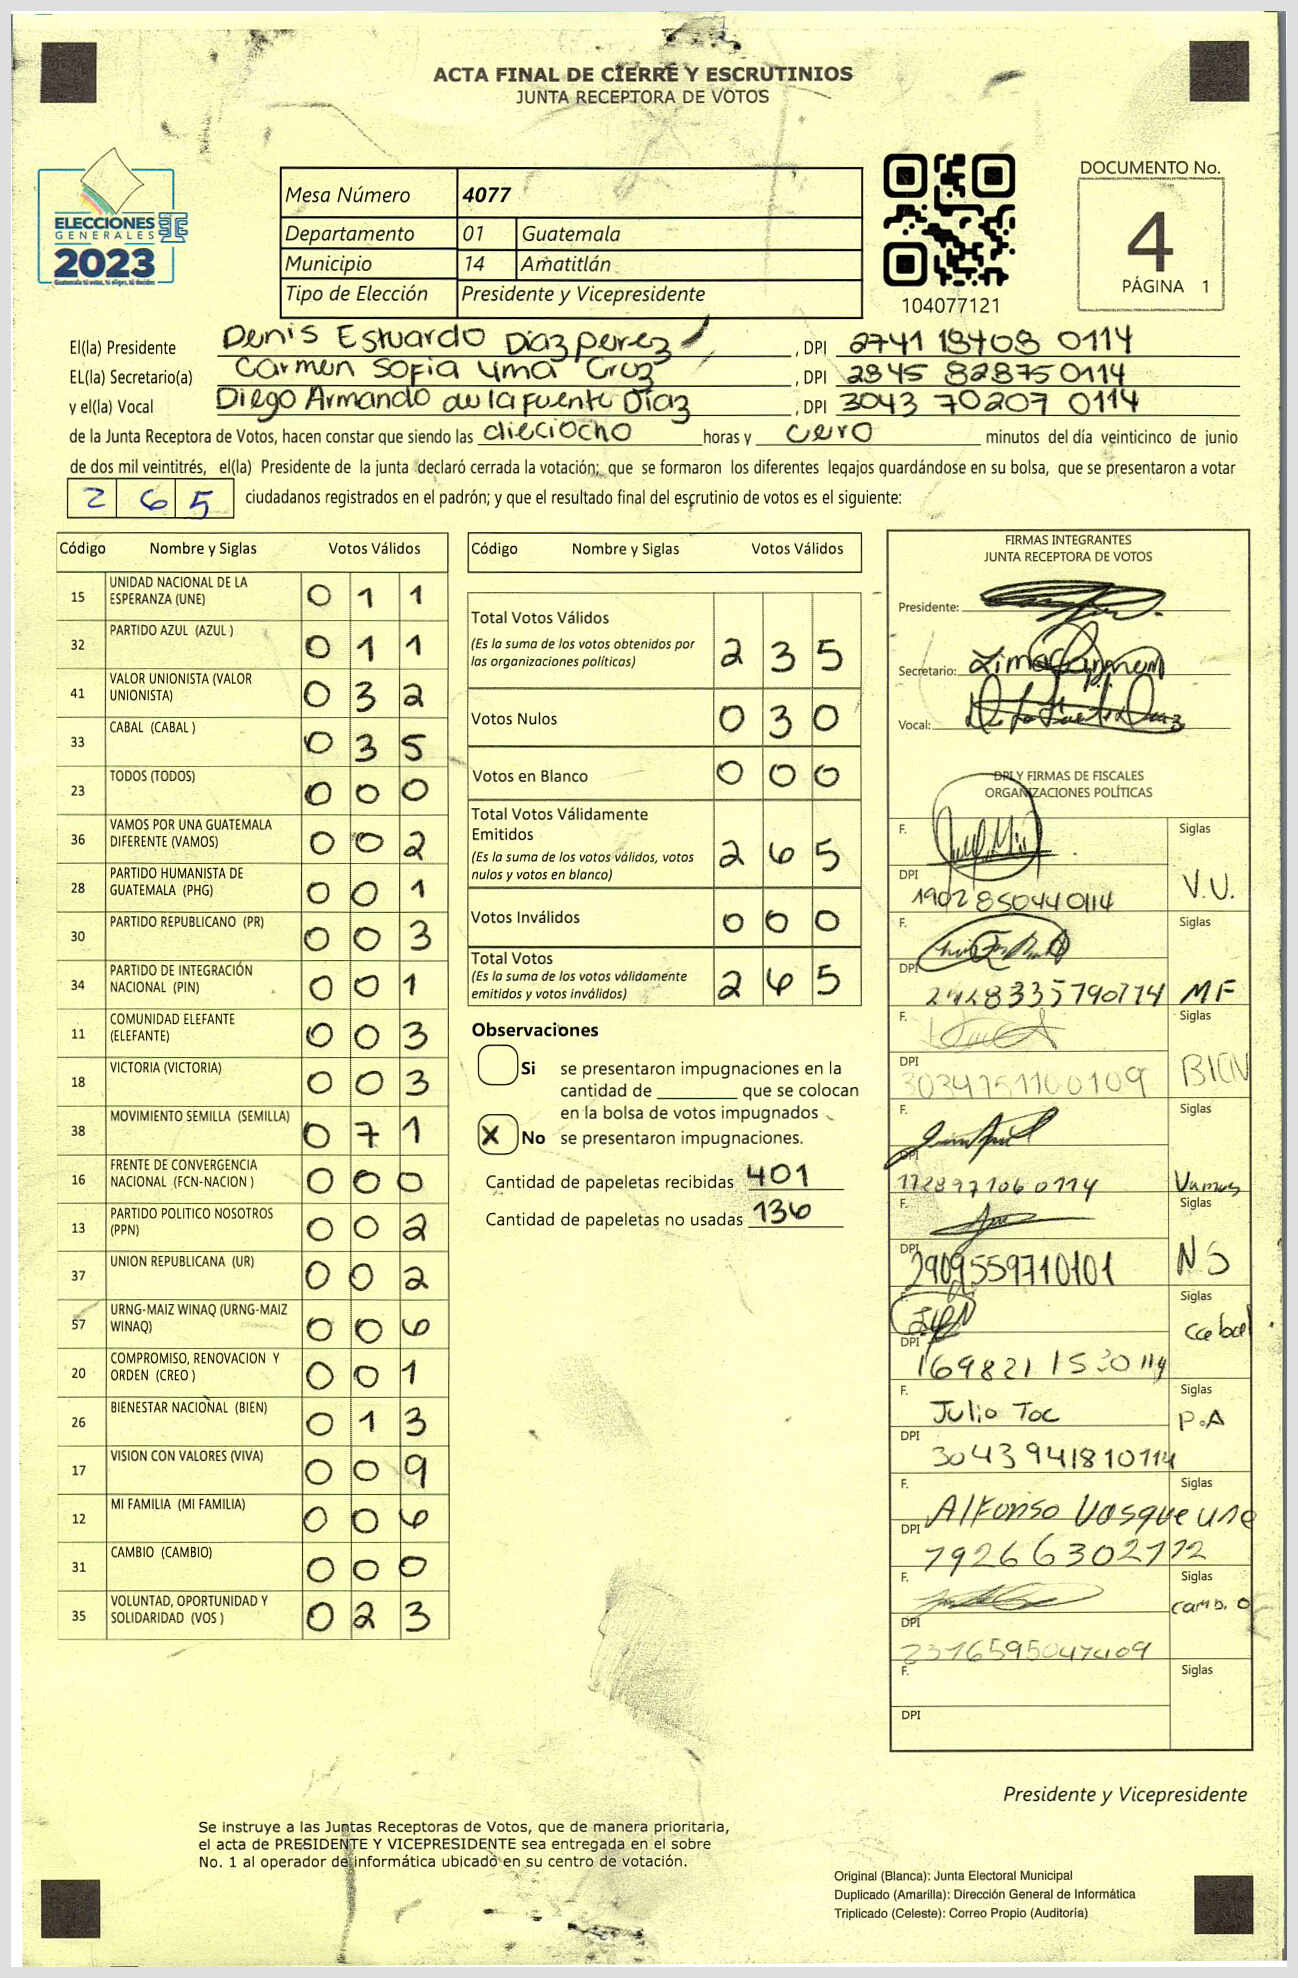 ACTA FINAL DE CIERRE Y ESCRUTINIOS
JUNTA RECEPTORA DE VOTOS
ELECCIONES
GENERALES
2023
Guatemala tú votas, tú eliges, tú decides
Mesa Número 4077
Departamento 01 Guatemala
Municipio 14 Amatitlán
Tipo de Elección Presidente y Vicepresidente
104077121
DOCUMENTO No.
4
PÁGINA 1
El(la) Presidente Denis Estuardo Díaz perez, DPI 2741 18408 0114
EL(la) Secretario(a) Carmen Sofia Lima Cruz, DPI 2845 82875 0114
y el(la) Vocal Diego Armando de la fuente Díaz, DPI 3043 70207 0114
de la Junta Receptora de Votos, hacen constar que siendo las dieciocho horas y cero minutos del día veinticinco de junio
de dos mil veintitrés, el(la) Presidente de la junta declaró cerrada la votación; que se formaron los diferentes legajos guardándose en su bolsa, que se presentaron a votar
265 ciudadanos registrados en el padrón; y que el resultado final del escrutinio de votos es el siguiente:
Código Nombre y Siglas Votos Válidos
15 UNIDAD NACIONAL DE LA ESPERANZA (UNE) 011
32 PARTIDO AZUL (AZUL ) 011
41 VALOR UNIONISTA (VALOR UNIONISTA) 032
33 CABAL (CABAL ) 035
23 TODOS (TODOS) 000
36 VAMOS POR UNA GUATEMALA DIFERENTE (VAMOS) 002
28 PARTIDO HUMANISTA DE GUATEMALA (PHG) 001
30 PARTIDO REPUBLICANO (PR) 003
34 PARTIDO DE INTEGRACIÓN NACIONAL (PIN) 001
11 COMUNIDAD ELEFANTE (ELEFANTE) 003
18 VICTORIA (VICTORIA) 003
38 MOVIMIENTO SEMILLA (SEMILLA) 071
16 FRENTE DE CONVERGENCIA NACIONAL (FCN-NACION ) 000
13 PARTIDO POLITICO NOSOTROS (PPN) 002
37 UNION REPUBLICANA (UR) 002
57 URNG-MAIZ WINAQ (URNG-MAIZ WINAQ) 006
20 COMPROMISO, RENOVACION Y ORDEN (CREO ) 001
26 BIENESTAR NACIONAL (BIEN) 013
17 VISION CON VALORES (VIVA) 009
12 MI FAMILIA (MI FAMILIA) 006
31 CAMBIO (CAMBIO) 000
35 VOLUNTAD, OPORTUNIDAD Y SOLIDARIDAD (VOS ) 023
Código Nombre y Siglas Votos Válidos
Total Votos Válidos 235
(Es la suma de los votos obtenidos por
las organizaciones políticas)
Votos Nulos 030
Votos en Blanco 000
Total Votos Válidamente
Emitidos 265
(Es la suma de los votos válidos, votos
nulos y votos en blanco)
Votos Inválidos 000
Total Votos 265
(Es la suma de los votos válidamente
emitidos y votos inválidos)
Observaciones
Si se presentaron impugnaciones en la
cantidad de ________ que se colocan
en la bolsa de votos impugnados
X No se presentaron impugnaciones.
Cantidad de papeletas recibidas 401
Cantidad de papeletas no usadas 136
FIRMAS INTEGRANTES
JUNTA RECEPTORA DE VOTOS
Presidente:
Secretario: Lima Carmen
Vocal:
DPI Y FIRMAS DE FISCALES
ORGANIZACIONES POLÍTICAS
F. Siglas
DPI 1902 85044 0114 V.U.
F. Siglas
DPI MF
F. Siglas
DPI BIEN
F. Siglas
DPI Vamos
F. Siglas
DPI 2909559710101 NS
F. Siglas
DPI cabal
F. Julio Toc Siglas
DPI 3043941810114 P.A
F. Alfonso Vasque Siglas une
DPI
F. Siglas
DPI camb.o
F. Siglas
DPI
Presidente y Vicepresidente
Se instruye a las Juntas Receptoras de Votos, que de manera prioritaria,
el acta de PRESIDENTE Y VICEPRESIDENTE sea entregada en el sobre
No. 1 al operador de informática ubicado en su centro de votación.
Original (Blanca): Junta Electoral Municipal
Duplicado (Amarilla): Dirección General de Informática
Triplicado (Celeste): Correo Propio (Auditoría)